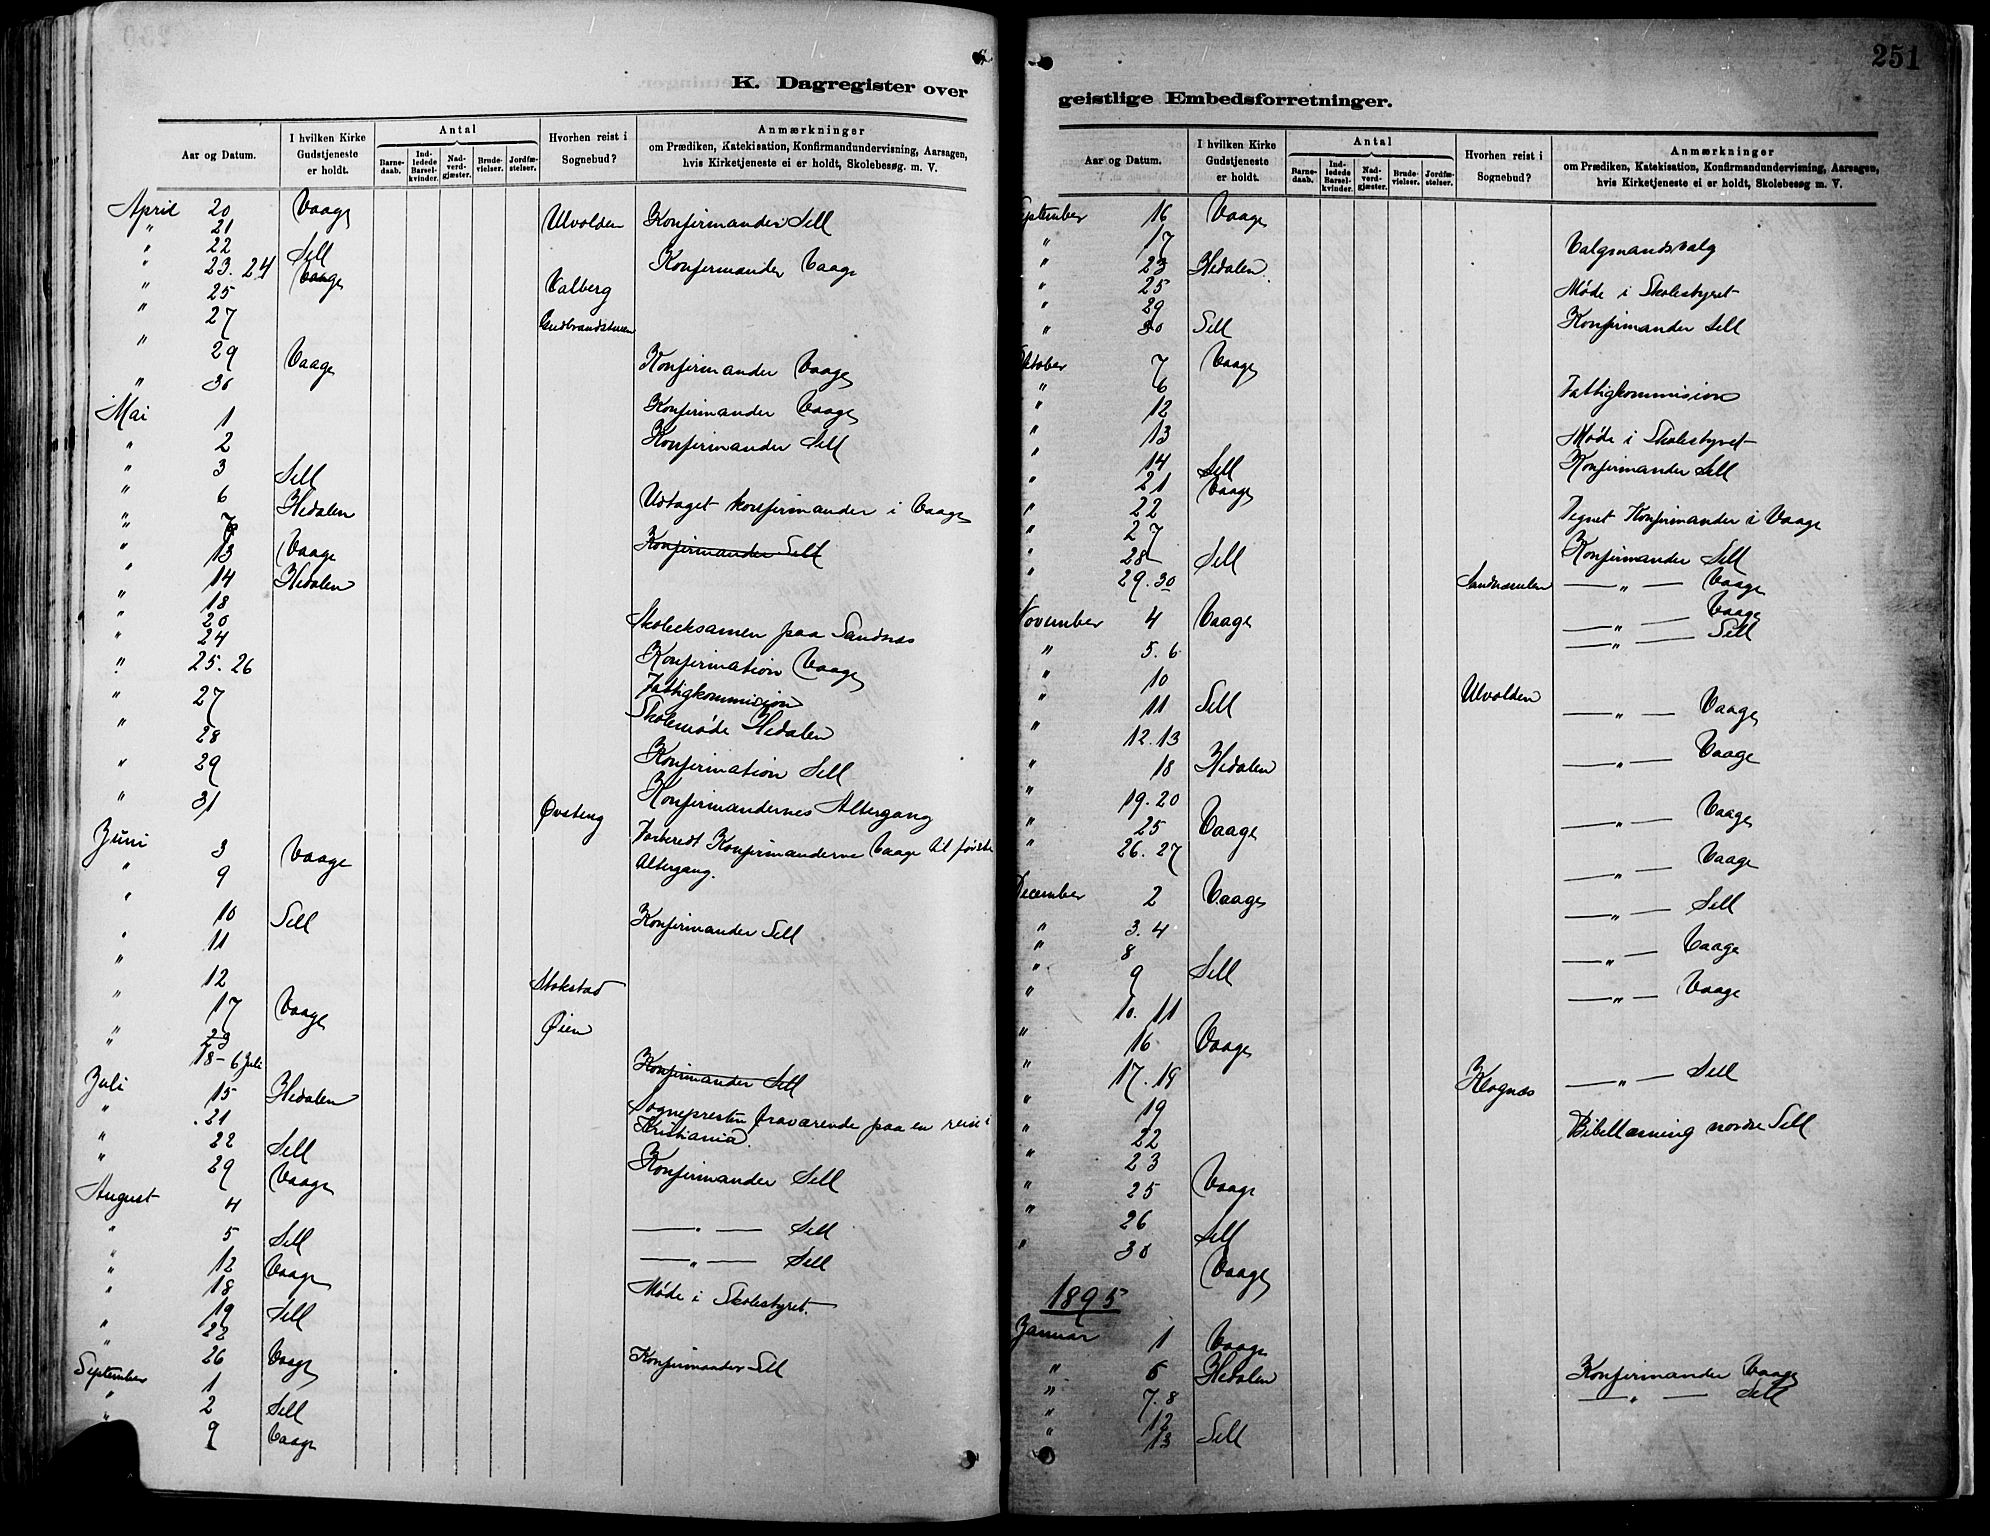 K. Dagregister over
Aar og Datum.
I hvilken Kirke Gudstjeneste er holdt.
Antal
Barne-daab.
Ind-ledede Barsel-kvinder.
Nad-verd-gjæster.
Brude-vielser.
Jordfæ-stelser.
Hvorhen reist i Sognebud?
Anmærkninger
om Prædiken, Katekisation, Konfirmandundervisning, Aarsagen,
hvis Kirketjeneste ei er holdt, Skolebesøg. m. V.
April 20 Vaage
" 21 Ulvolden Konfirmander Sell
" 22 Sell
" 23. 24 Vaage Konfirmander Vaage
" 25 Valberg
" 27 Gudbrandstuen
" 29 Vaage
" 30 Konfirmander Vaage
Mai 1 Konfirmander Vaage
" 2 Konfirmander Sell
" 3 Sell
" 6 Hedalen
" 7 Udtaget konfirmander i Vaage
" 13 Vaage Konfirmander Sell
" 14 Hedalen
" 18
" 20
" 24 Skoleeksamen paa Sandnæs
" 25. 26 Konfirmation Vaage
" 27 Fattigkommision
" 28 Skolemøde Hedalen
" 29 Konfirmation Sell
" 31 Øvsteng Konfirmandernes Altergang
Juni 3 Vaage Forberedt Konfirmanderne Vaage til første
" 9 Altergang.
" 10 Sell
" 11 Konfirmander Sell
" 12 Stokstad
" 17 Vaage Øien
" 23
18-6 Juli
Juli 15 Hedalen Konfirmander Sell
" 21 Sognepresten fraværende paa en reise i
Kristiania.
" 22 Sell
" 29 Vaage Konfirmander Sell
August 4
" 5 Sell —"— Sell
" 12 Vaage —"— Sell
" 18 Møde i Skolestyret.
" 19 Sell
" 22
" 26 Vaage Konfirmander Sell
September 1
" 2 Sell
" 9 Vaage
251
geistlige Embedsforretninger.
Aar og Datum.
I hvilken Kirke Gudstjeneste er holdt.
Antal
Barne-daab.
Ind-ledede Barsel-kvinder.
Nad-verd-gjæster.
Brude-vielser.
Jordfæ-stelser.
Hvorhen reist i Sognebud?
Anmærkninger
om Prædiken, Katekisation, Konfirmandundervisning, Aarsagen,
hvis Kirketjeneste ei er holdt, Skolebesøg m. V.
September 16 Vaage
" 17 Valgmandsvalg
" 23 Hedalen
" 25 Møde i Skolestyret
" 29 Konfirmander Sell
" 30 Sell
Oktober 7 Vaage
" 6 Fattigkommision
" 12
" 13 Møde i Skolestyret
" 14 Sell Konfirmander Sell
" 21 Vaage
" 22 Tegnet Konfirmander i Vaage
" 27 Konfirmander Sell
" 28 Sell
" 29. 30 —"— Vaage
November 4 Vaage —"— Vaage
" 5. 6 —"— Sell
" 10 Ulvolden
" 11 Sell —"— Vaage
" 12. 13 —"— Vaage
" 18 Hedalen
" 19. 20 —"— Vaage
" 25 Vaage
" 26. 27 —"— Vaage
December 2 Vaage —"— Sell
" 3. 4 —"— Vaage
" 8
" 9 Sell —"— Vaage
" 10. 11
" 16 Vaage
" 17. 18 Klognæs —"— Sell
" 19 Bibellæsning nordre Sell
" 22
" 23
" 25 Vaage
" 26 Sell
" 30 Vaage
1895
Januar 1 Vaage
" 6 Hedalen Konfirmander Vaage
" 7. 8 —"— Sell
" 12
" 13 Sell